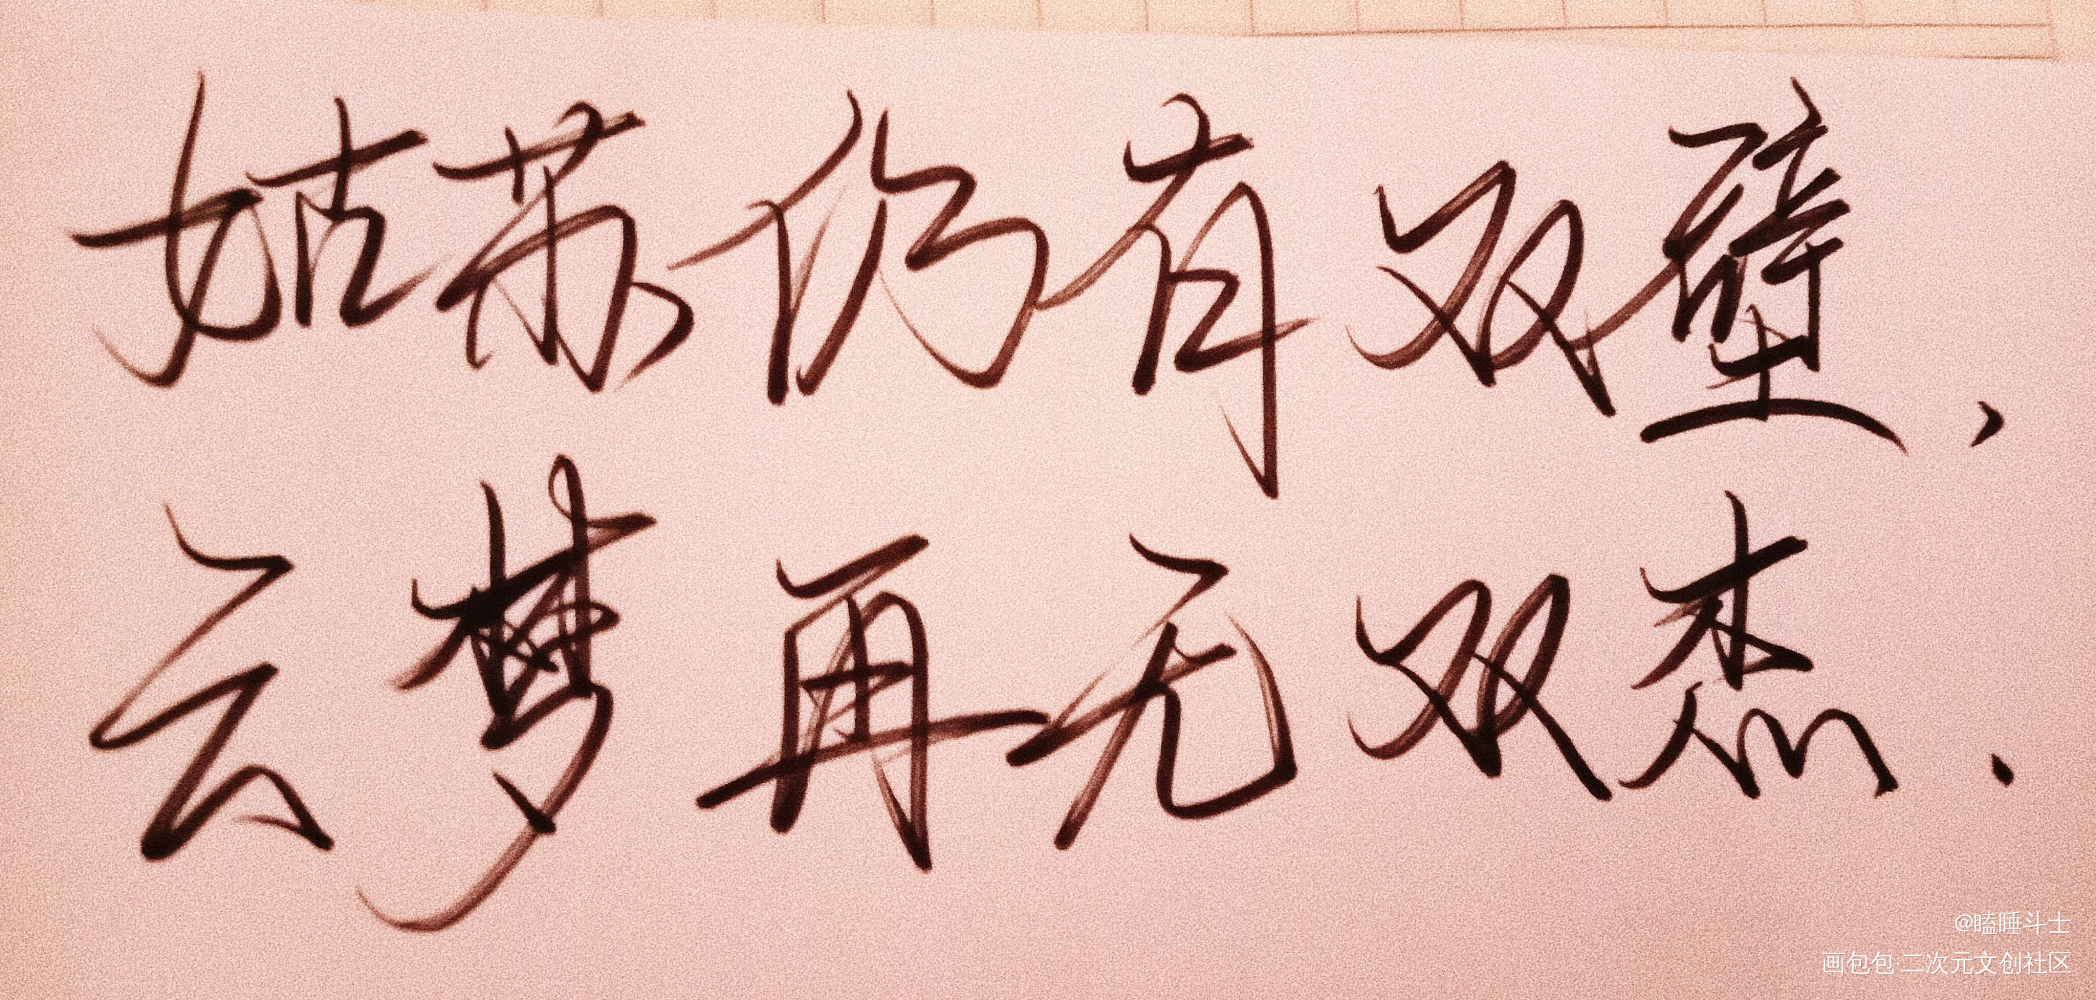 姑苏仍有双壁，
云梦再无双杰．
@瞌睡斗士
画包包·二次元文创社区